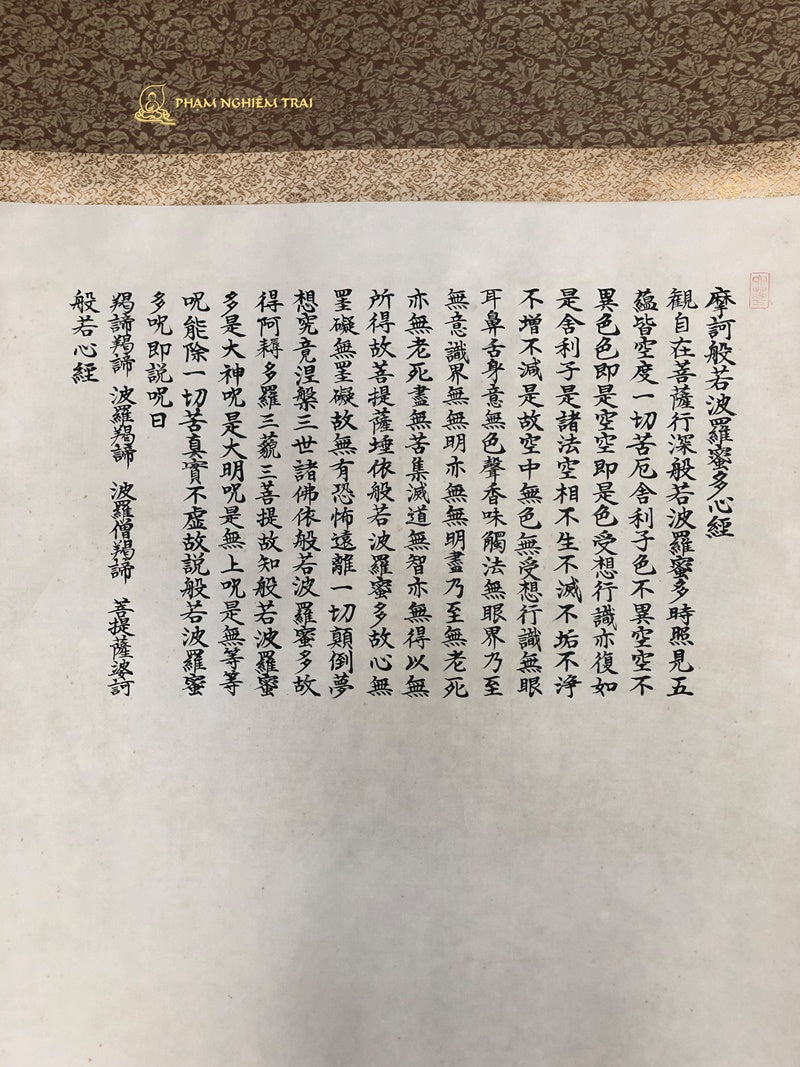 PHẠM NGHIÊM TRAI
摩訶般若波羅蜜多心經
觀自在菩薩行深般若波羅蜜多時照見五
蘊皆空度一切苦厄舍利子色不異空空不
異色色即是空空即是色受想行識亦復如
是舍利子是諸法空相不生不滅不垢不淨
不增不減是故空中無色無受想行識無眼
耳鼻舌身意無色聲香味觸法無眼界乃至
無意識界無無明亦無無明盡乃至無老死
亦無老死盡無苦集滅道無智亦無得以無
所得故菩提薩埵依般若波羅蜜多故心無
罣礙無罣礙故無有恐怖遠離一切顛倒夢
想究竟涅槃三世諸佛依般若波羅蜜多故
得阿耨多羅三藐三菩提故知般若波羅蜜
多是大神呪是大明呪是無上呪是無等等
呪能除一切苦真實不虛故説般若波羅蜜
多呪即説呪曰
羯諦羯諦 波羅羯諦 波羅僧羯諦 菩提薩婆訶
般若心經